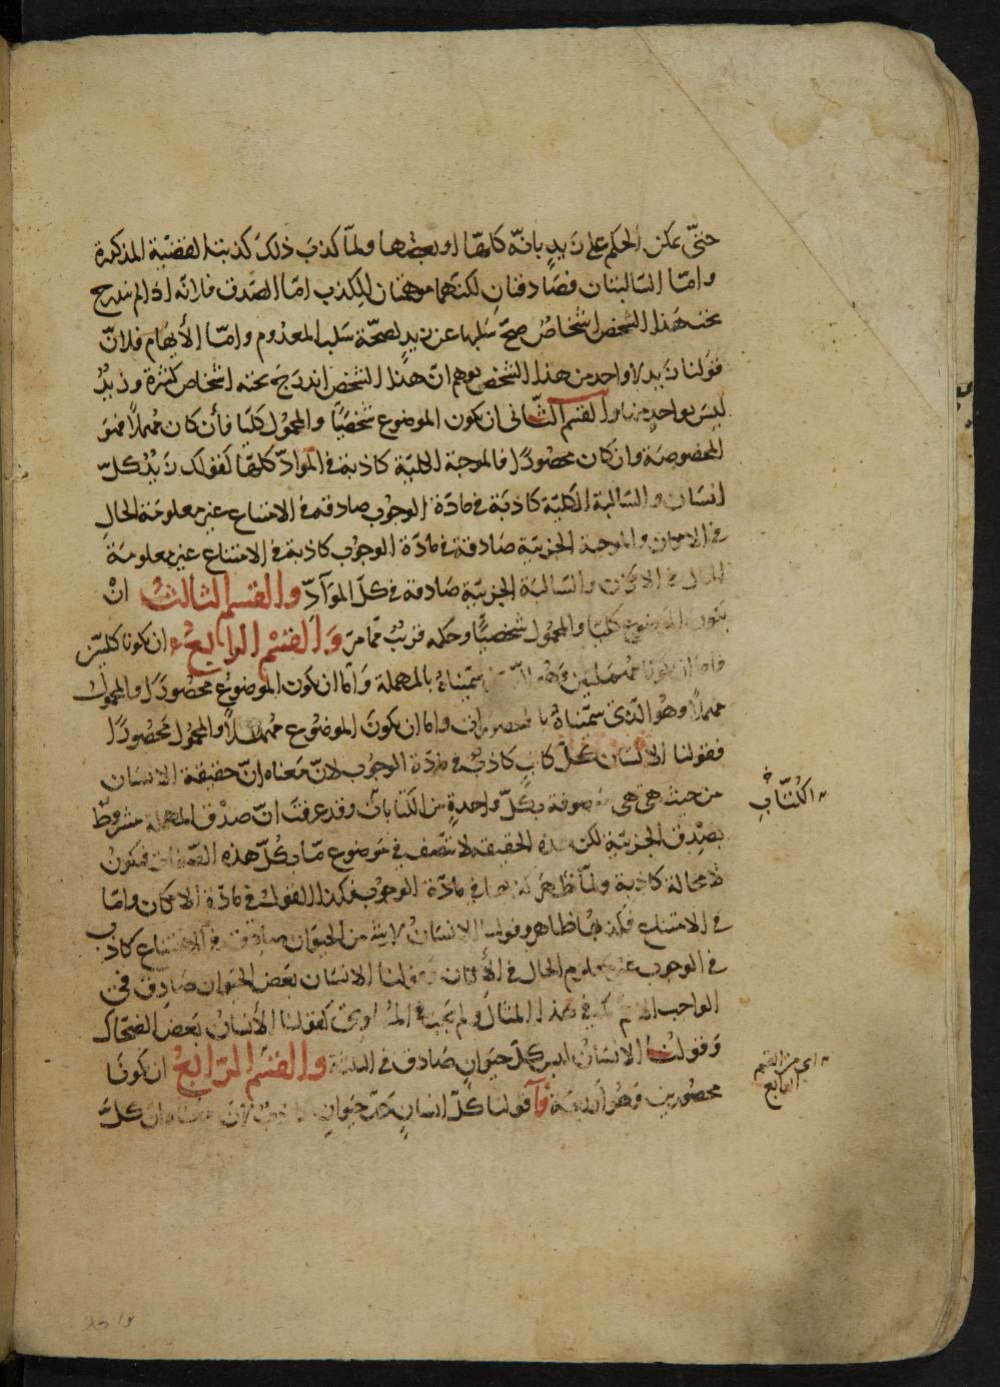 حتى يمكن الحكم على زيد بانه كلها او بعضها ولما كذب ذلك كذبت القضية المذكورة
واما السالبتان فصادقتان لكنهما موهمتان للكذب اما الصدق فلانه اذا لم يندرج
تحت هذا الشخص اشخاص صح سلبها عن زيد لصحة سلب المعدوم واما الأيهام فلانّ
قولنا زيد لا واحد من هذا الشخص يوهم ان هذا الشخص اندرج تحته اشخاص كثيرة وزيد
ليس بواحد منها والقسم الثانى ان يكون الموضوع شخصيًا والمحمول كليا فأن كان مهملًا فهو
المخصوصة وان كان محصورًا فالموجبة الكلية كاذبة فى المواد كلها كقولك زيد كلّ
انسان والسالبة الكلية كاذبة فى مادة الوجوب صادقة فى الامتناع غير معلومة الحال
فى الامكان والموجبة الجزئية صادقة فى مادة الوجوب كاذبة فى الامتناع غير معلومة
الحال فى الامكان والسالبة الجزئية صادقة فى كل الموادّ والقسم الثالث ان
يكون الموضوع كليًا والمحمول شخصيًا وحكمه قريب مما مر والقسم الرابع ان يكونا كليين
فاما ان يكونا مهملين وهو الذى سميناه بالمهملة واما ان يكون الموضوع محصورًا والمحمول
مهملًا وهو الذى سميناه واما ان يكون الموضوع مهملًا والمحمول محصورًا
فقولنا الانسان كلّ كاتب كاذب فى مادة الوجوب لانّ معناه انّ حقيقة الانسان
من حيث هى هى موصوفة بكلّ واحدةٍ من الكتابات وقد عرفت انّ صدق المهملة مشروط
بصدق الجزئية لكن هذه الحقيقة لا تتصف فى موضوع مّا بكلّ هذه الصفات فيكون
لا محالة كاذبة ولما ظهر كذبها فى مادّة الوجوب فكذا القول فى مادّة الامكان واما
فى الامتناع فكذبها ظاهر وقولنا الانسان لا شئ من الحيوان صادق فى الامتناع كاذب
فى الوجوب غير معلوم الحال فى الأمكان وقولنا الانسان بعض الحيوان صادق فى
الواجب فى هذا المثال ولم يجب فى المساوى كقولنا الأنسان بعض الضحاك
وقولنا الانسان ليس كلّ حيوان صادق فى والقسم الرابع ان يكونا
محصورين وهو قولنا كلّ انسانٍ كلّ حيوان لان معناه ان كل
الكُتّابِ
اى من القسم
الرابع